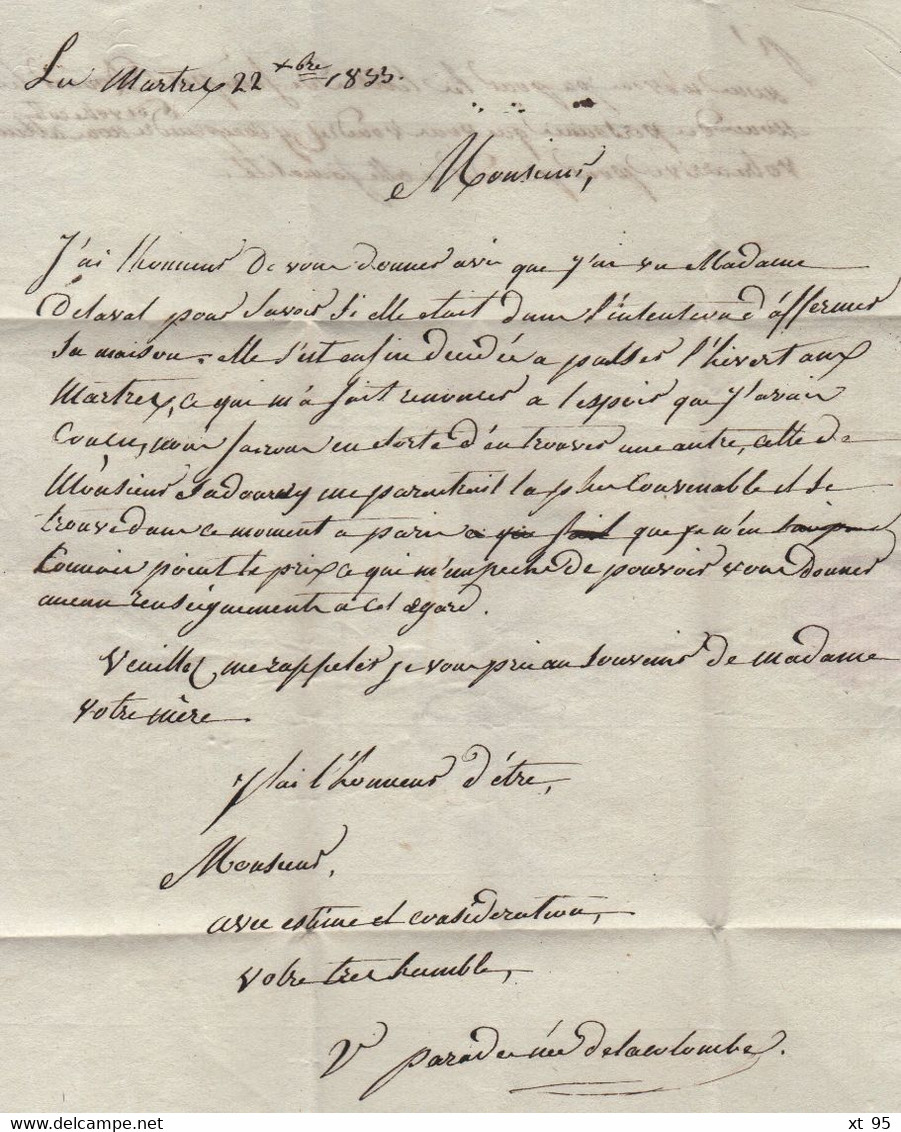 Les Martres 22 xbre 1833.
Monsieur,
J'ai l'honneur de vous donner avis que j'ai vu Madame
Delaval pour savoir si elle etait dans l'intention d'affermer
sa maison. elle s'est enfin decidée a passer l'hivert aux
Martres, ce qui m'a fait renoncer a l'espoir que j'avais
Conçu, nous fairons en sorte d'en trouver une autre, celle de
Monsieur me paraitrait la plus Convenable et se
trouve dans ce moment a paris ce qui fait que je n'en
Connais point le prix ce qui m'empeche de pouvoir vous donner
aucun renseignements a cet egard.
Veuillez me rappeler je vous prie au souvenir de madame
votre mère.
J'ai l'honneur d'être,
Monsieur,
avec estime et consideration,
votre tres humble,
Ve parade née delacolombe.
xt 95